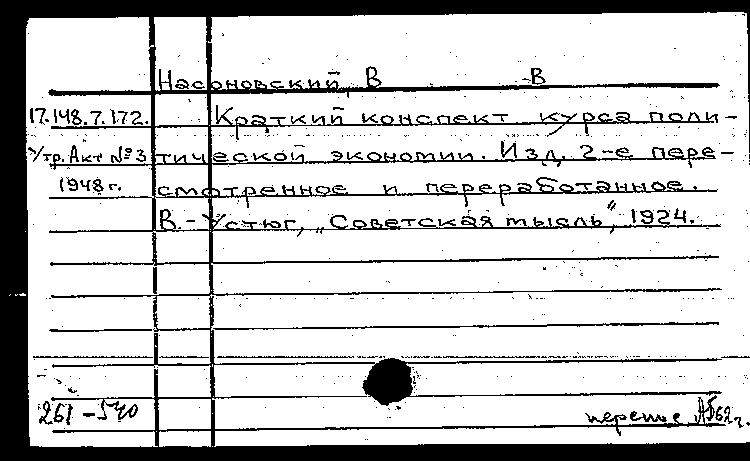 Насоновский, В В
17.148.7.172. Краткий конспект курса поли-
Утр. Акт №3 тической экономии. Изд. 2-е пере-
1948 г. смотренное и переработанное.
В-Устюг, „Советская мысль", 1924.
261-540